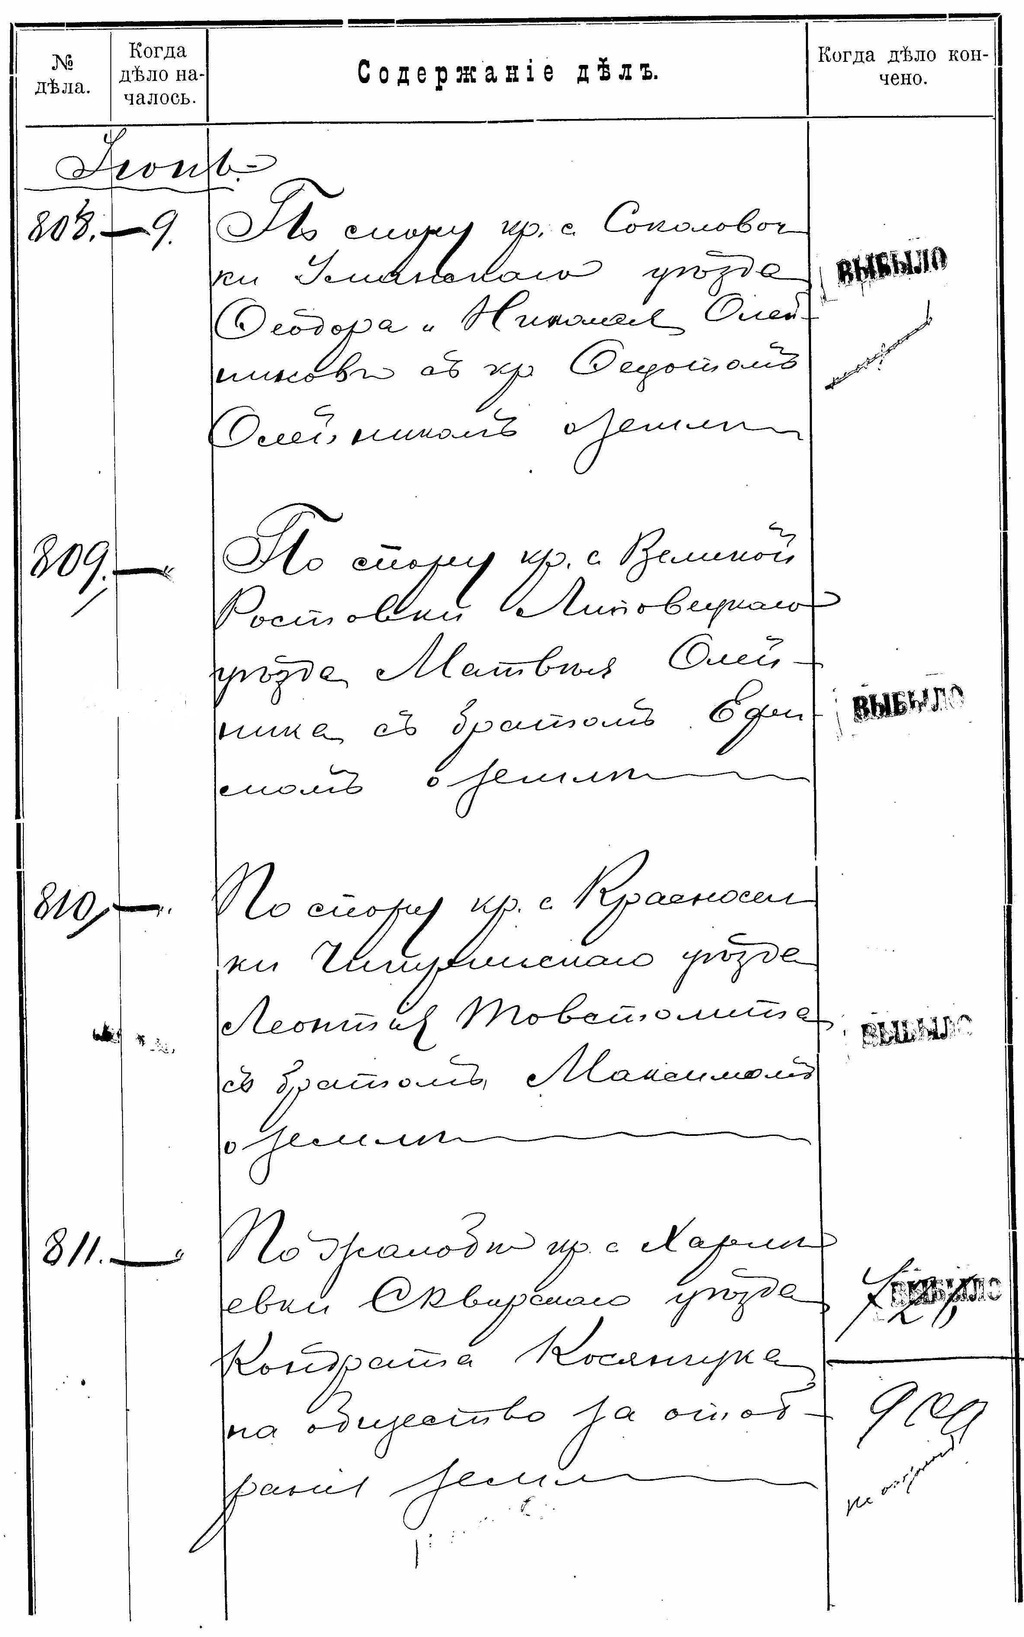 № дѣла.
Когда дѣло на-
чалось.
Содержаніе дѣлъ.
Когда дѣло кон-
чено.
Іюнь.
808. — 9. По спору кр. с. Соколовоч
ки Уманскаго уѣзда
Ѳеодора и Николая Олей-
никовъ съ кр Ѳедотомъ
Олейникомъ о землѣ
ВЫБЫЛО
809. — " По спору кр. с. Великой
Ростовки Липовецкаго
уѣзда Матвѣя Олей-
ника съ братомъ Ефи-
момъ о землѣ
ВЫБЫЛО
810, — " По спору кр. с. Красносел
ки Чигиринскаго уѣзда
Леонтія Товстолита
съ братомъ Максимомъ
о землѣ
ВЫБЫЛО
811. — " По жалобѣ кр. с Харлѣ
евки Сквирскаго уѣзда
Кондрата Косянчука
на общество за отоб-
раніе земли
ВЫБЫЛО